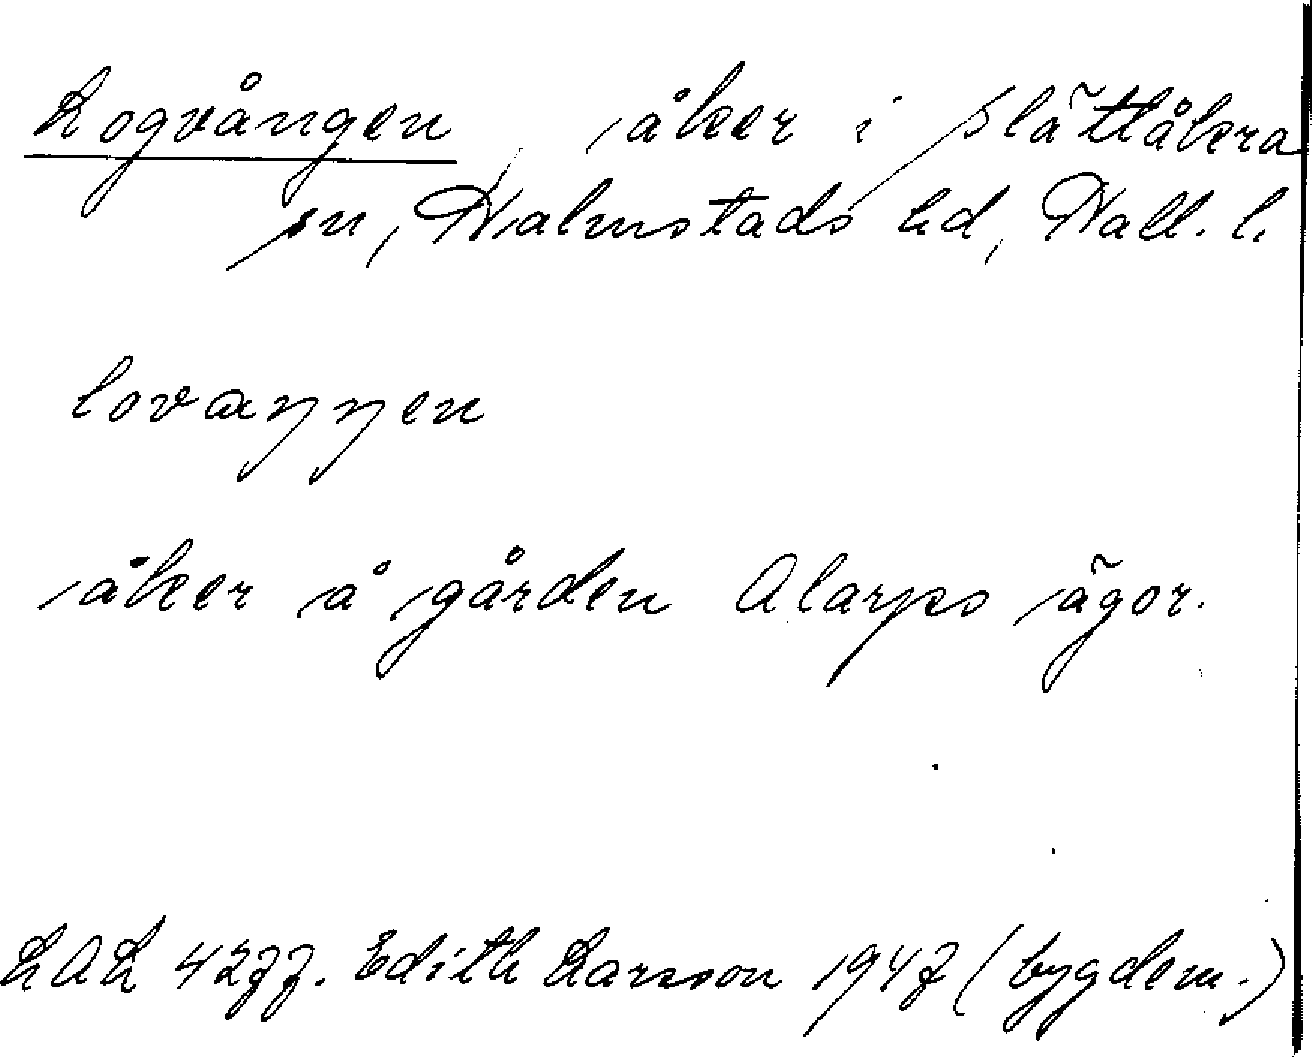 Logvången, åker i Slättåkra
sn, Halmstads hd, Hall. l.
lovaŋŋen
åker å gården Alarps ägor.
LAL 4277. Edith Larsson 1947 (bygdem.)